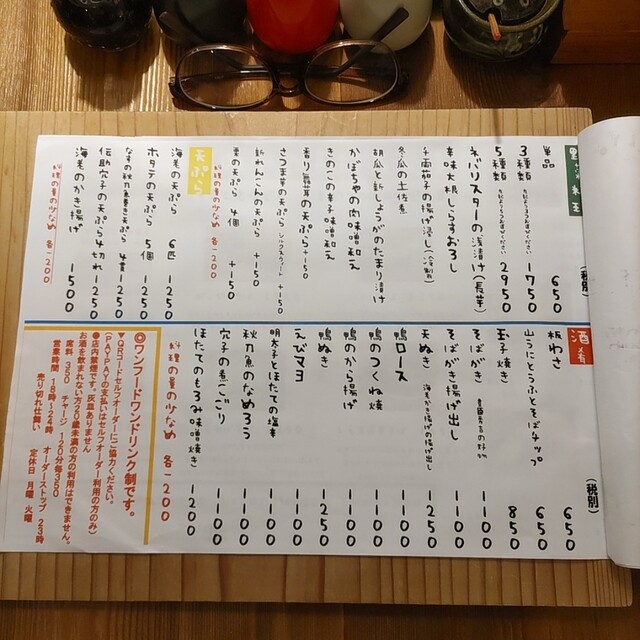 (税別)
単品 650
3種類 1750
5種類 2950
ネバリスターの浅漬け(長芋)
辛味大根しらすおろし
千両茄子の揚げ浸し(冷製)
冬瓜の土佐煮
胡瓜と新しょうがのたまり漬け
かぼちゃの肉味噌和え
きのこの辛子味噌和え
香り舞茸の天ぷら +150
さつま芋の天ぷら +150
新れんこんの天ぷら +150
栗の天ぷら 4個 +150
料理の量の少なめ 各-200
天ぷら
海老の天ぷら 6匹 1250
ホタテの天ぷら 5個 1250
なすの秋刀魚巻き天ぷら 4貫 1250
伝助穴子の天ぷら 4切れ 1250
海老のかき揚げ 1500
料理の量の少なめ 各-200
酒肴
(税別)
板わさ 650
山うにとうふとそばチップ 650
玉子焼き 850
そばがき 1100
そばがき揚げ出し 1100
天ぬき 海老かき揚げの揚げ出し 1250
鴨ロース 1100
鴨のつくね焼 1100
鴨のから揚げ 1100
鴨ぬき 1250
えびマヨ 1100
明太子とほたての塩辛 1100
秋刀魚のなめろう 1100
穴子の煮こごり 1100
ほたてのもろみ味噌焼き 1200
料理の量の少なめ 各-200
◎ワンフードワンドリンク制です。
▼QRコードセルフオーダーにご協力ください。
(PAYPAYの支払いはセルフオーダー利用の方のみ)
●店内禁煙です。灰皿ありません
お酒を飲まれない方20歳未満の方の利用はできません。
席料 350 チャージ 120分毎350
営業時間 18時~24時 オーダーストップ 23時
売り切れ仕舞い 定休日 月曜 火曜